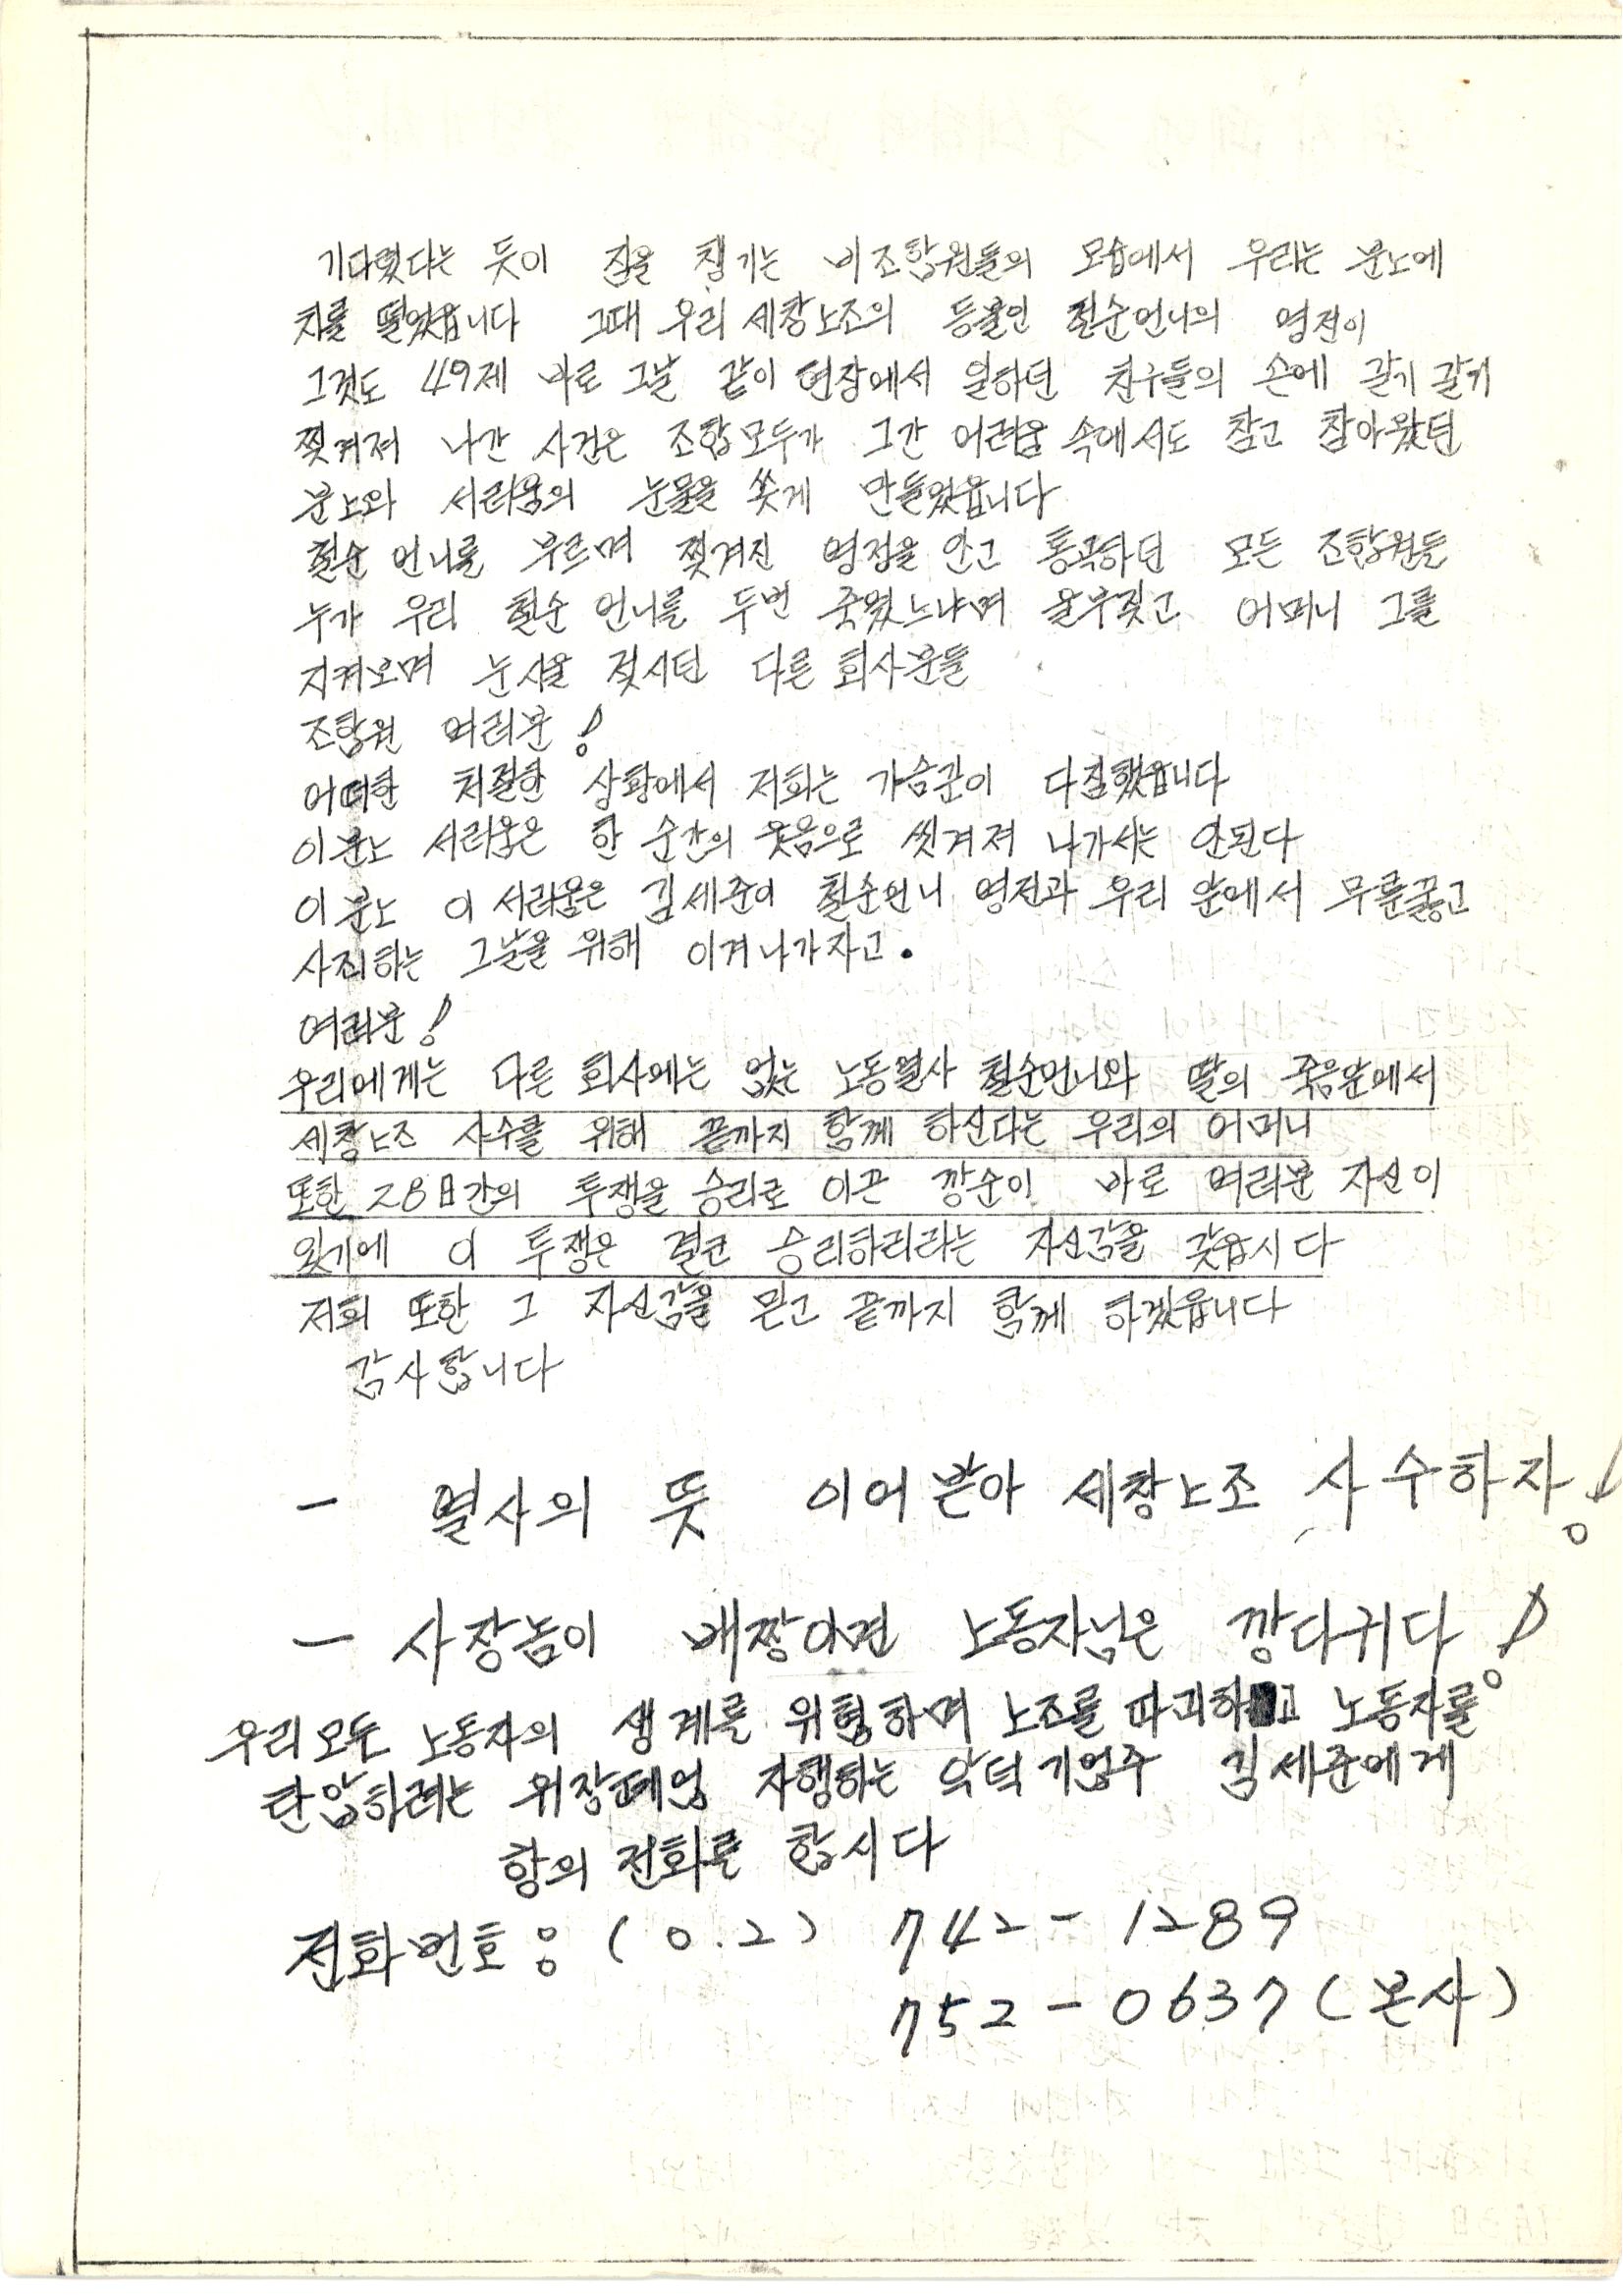 기다렸다는 듯이 짐을 챙기는 비조합원들의 모습에서 우리는 분노에
치를 떨었읍니다 그때 우리 세창노조의 등불인 철순언니의 영전이
그것도 49제 바로 그날 같이 현장에서 일하던 친구들의 손에 갈기 갈기
찢겨져 나간 사건은 조합모두가 그간 어려움 속에서도 참고 참아왔던
분노와 서러움의 눈물을 쏫게 만들었읍니다
철순 언니를 부르며 찢겨진 영정을 안고 통곡하던 모든 조합원들
누가 우리 철순 언니를 두번 죽였느냐며 울부짖고 어머니 그를
지켜보며 눈시울 젖시던 다른 회사분들
조합원 여러분!
어떠한 처절한 상황에서 저희는 가슴깊이 다짐했읍니다
이분노 서러움은 한 순간의 웃음으로 씻겨져 나가서는 안된다
이 분노 이 서러움은 김세준이 철순언니 영전과 우리 앞에서 무릎꿇고
사죄하는 그날을 위해 이겨나가자고.
여러분!
우리에게는 다른 회사에는 없는 노동열사 철순언니와 딸의 죽음앞에서
세창노조 사수를 위해 끝까지 함께 하신다는 우리의 어머니
또한 28日간의 투쟁을 승리로 이끈 깡순이 바로 여러분 자신이
있기에 이 투쟁은 결코 승리하리라는 자신감을 갖읍시다
저희 또한 그 자신감을 믿고 끝까지 함께 하겠읍니다
감사합니다
- 열사의 뜻 이어받아 세창노조 사수하자!
- 사장놈이 배짱이면 노동자님은 깡다귀다!
우리모두 노동자의 생계를 위협하며 노조를 파괴하고 노동자를
탄압하려는 위장폐업 자행하는 악덕기업주 김세준에게
항의 전화를 합시다
전화번호: (0.2) 742-1289
752-0637(본사)